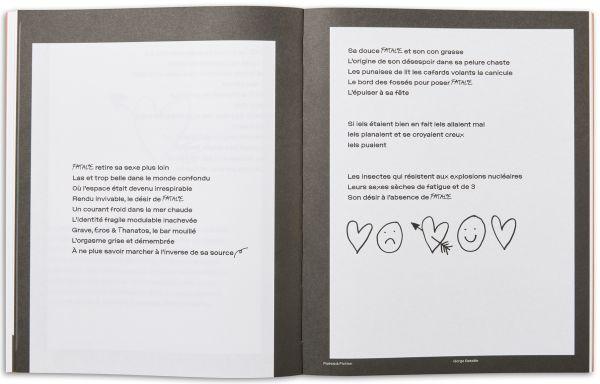 FATALE retire sa sexe plus loin
Las et trop belle dans le monde confondu
Où l'espace était devenu irrespirable
Rendu invivable, le désir de FATALE
Un courant froid dans la mer chaude
L'identité fragile modulable inachevée
Grave, Eros & Thanatos, le bar mouillé
L'orgasme grise et démembrée
À ne plus savoir marcher à l'inverse de sa source
Sa douce FATALE et son con grasse
L'origine de son désespoir dans sa pelure chaste
Les punaises de lit les cafards volants la canicule
Le bord des fossés pour poser FATALE
L'épuiser à sa fête
Si iels étaient bien en fait iels allaient mal
Iels planaient et se croyaient creux
Iels puaient
Les insectes qui résistent aux explosions nucléaires
Leurs sexes sèches de fatigue et de 3
Son désir à l'absence de FATALE